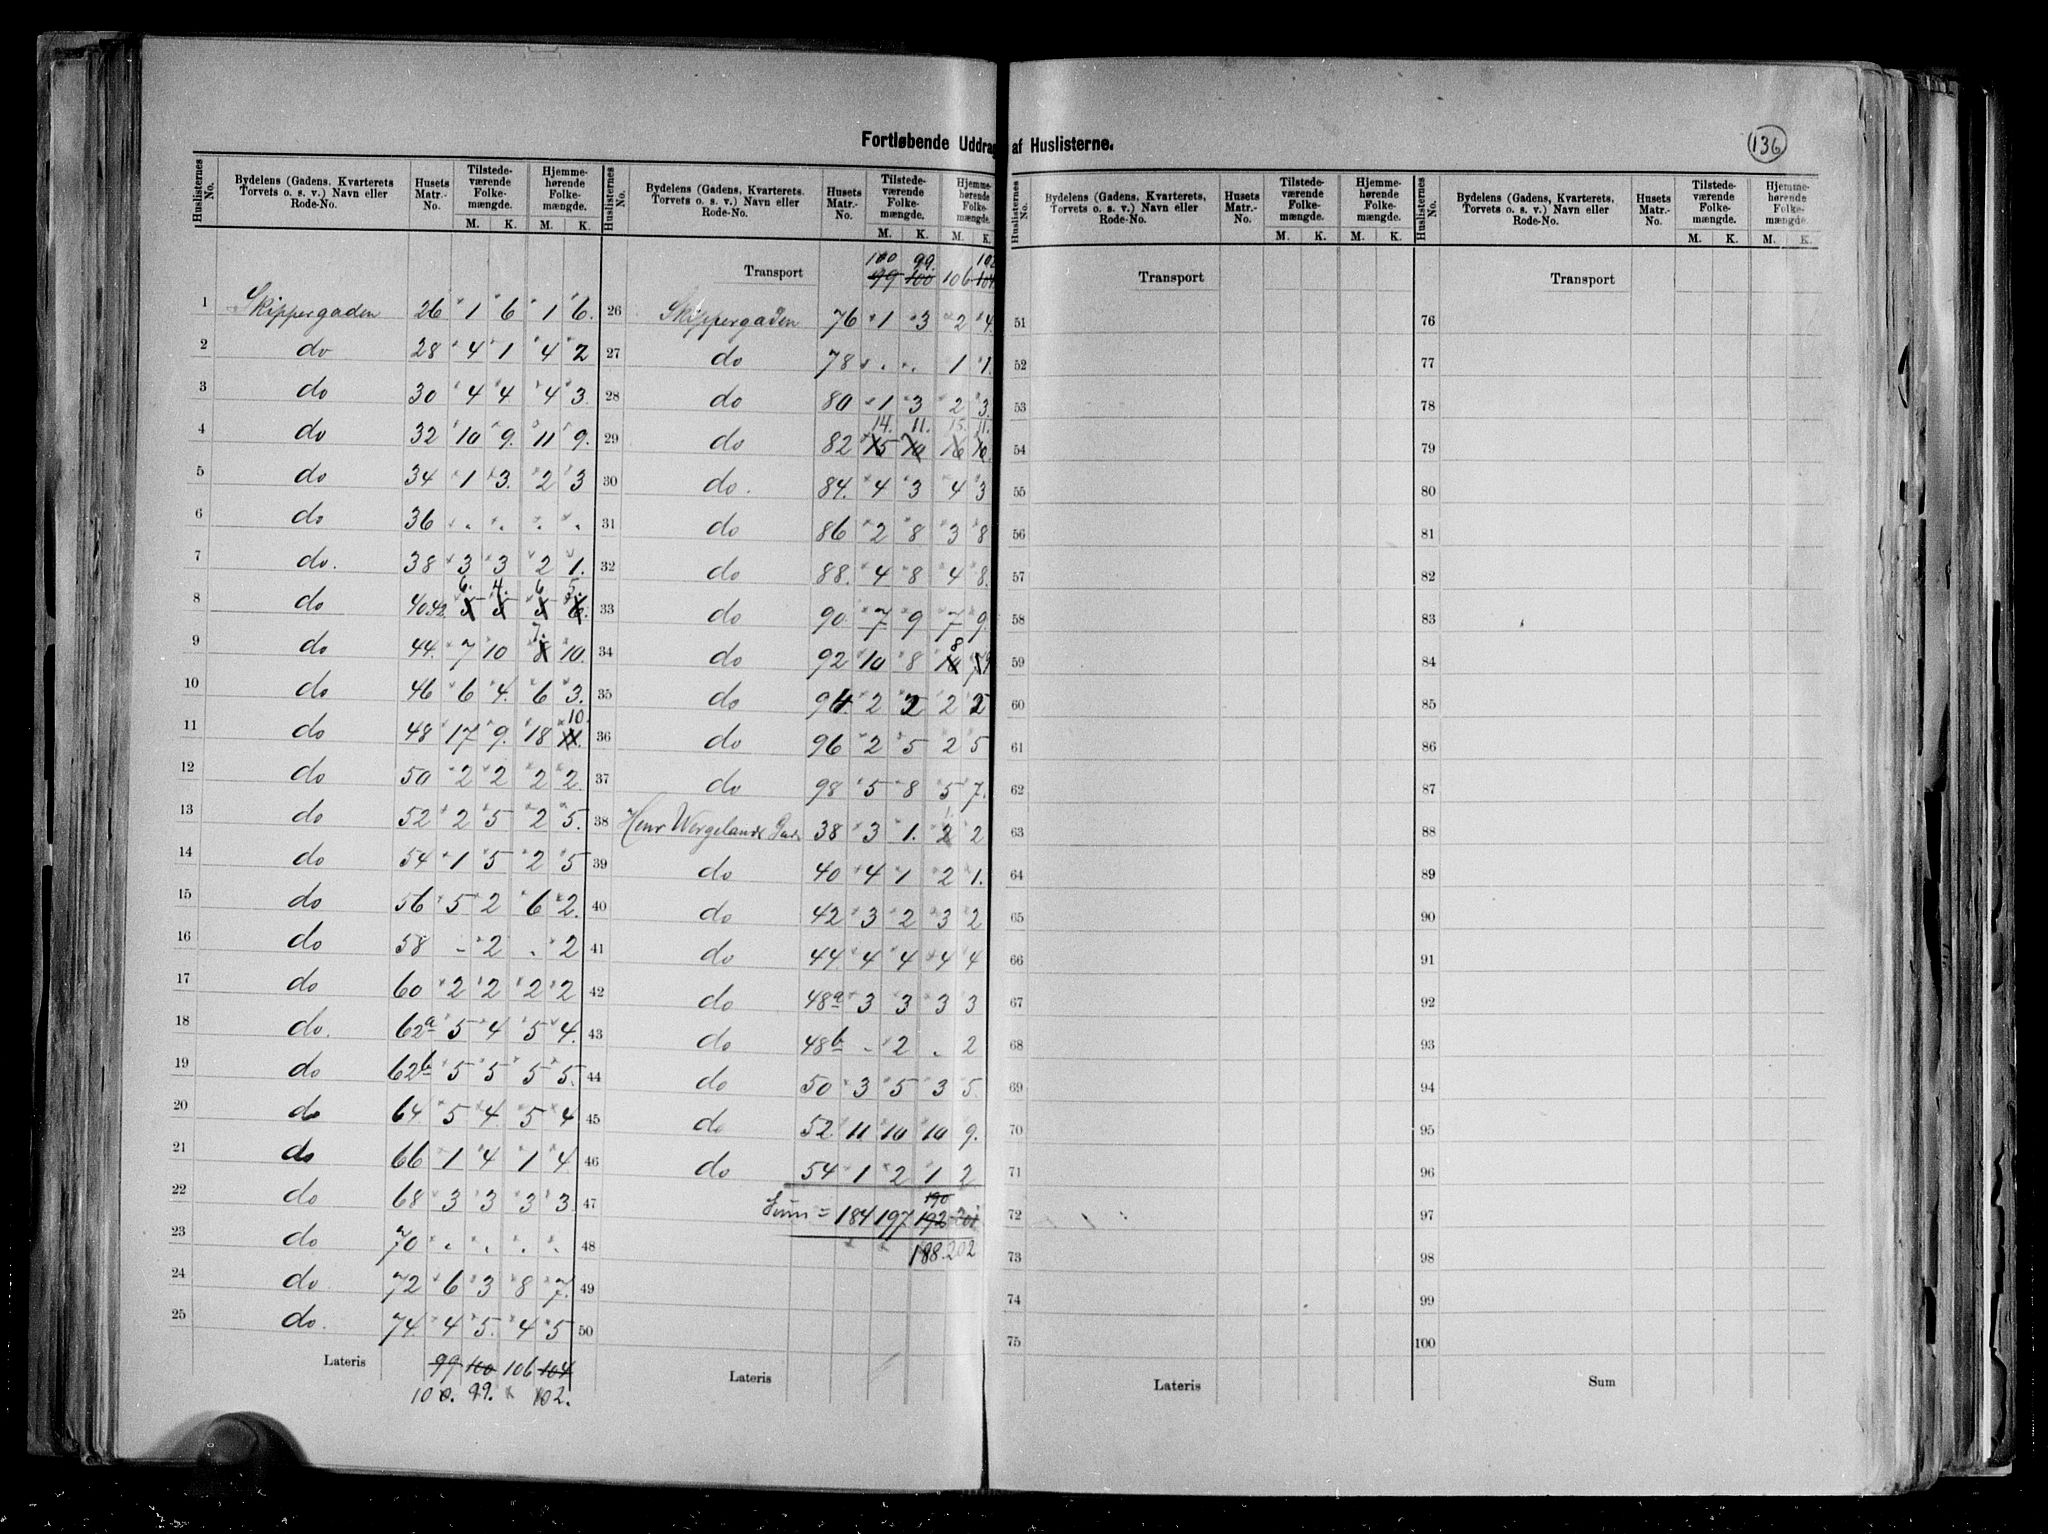 Fortløbende Uddrag af Huslisterne.
136
Huslisternes No. Bydelens (Gadens, Kvarterets Torvets o. s. v.) Navn eller Rode-No. Husets Matr.-No. Tilstedeværende Folkemængde. M. K. Hjemmehørende Folkemængde. M. K.
1 Skippergaden 26 1 6 1 6.
2 do 28 4 1 4 2
3 do 30 4 4 4 3
4 do 32 10 9. 11 9.
5 do 34 1 3. 2 3
6 do 36 . . . .
7 do. 38 3 3 2 1.
6. 4. 6 5.
8 do 40.42. 5 5 5 6.
7.
9 do 44. 7 10 8 10.
10 do 46 6 4. 6 3.
10.
11 do 48 17 9. 18 11.
12 do 50 2 2 2 2.
13 do 52 2 5 2 5.
14 do 54 1 5 2 5
15 do 56 5 2 6 2.
16 do 58 - 2 . 2
17 do 60 2 2 2 2
18 do. 62a 5 4 5 4.
19 do 62b 5 5 5 5.
20 do 64. 5 4. 5 4
21 do 66 1 4 1 4.
22 do 68 3 3 3 3.
23 do 70 . . . .
24 do 72 6 3 8 7.
25 do. 74. 4 5. 4 5
Lateris 99 100 106 104
100. 99. 102.
Huslisternes No. Bydelens (Gadens, Kvarterets. Torvets o. s. v.) Navn eller Rode-No. Husets Matr.-No. Tilstedeværende Folkemængde. M. K. Hjemmehørende Folkemængde. M. K.
100 99. 102
Transport 99 100 106 104
26 Skippergaden 76 1 3 2 4.
27 do 78 . . 1 1.
28 do 80 1 3 2 3.
14. 11. 15. 11.
29 do 82 15 10 16 10.
30 do. 84. 4 3 4 3
31 do 86 2 8 3 8
32 do 88. 4 8 4 8.
33 do 90. 7 9 7 9.
8
34 do 92 10 8 10 9
35 do 94. 2 2 2 2
36 do 96 2 5 2 5
37 do 98 5 8 5 7.
38 Henr Wergelands Gade 38 3 1. 2 2
39 do 40 4 1 2 1.
40 do 42 3 2 3 2
41 do 44. 4 4 4 4
42 do 48a 3 3 3 3
43 do 48b - 2 . 2
44 do 50 3 5 3 5.
45 do 52. 11 10 10 9.
46 do 54 1 2 1 2
190
47 Sum = 184 197 192 201
48 188. 202
49
50
Lateris
Huslisternes No. Bydelens (Gadens, Kvarterets, Torvets o. s. v.) Navn eller Rode-No. Husets Matr.-No. Tilstedeværende Folkemængde. M. K. Hjemmehørende Folkemængde. M. K.
Transport
51
52
53
54
55
56
57
58
59
60
61
62
63
64
65
66
67
68
69
70
71
72
73
74
75
Lateris
Huslisternes No. Bydelens (Gadens, Kvarterets, Torvets o. s. v.) Navn eller Rode-No. Husets Matr.-No. Tilstedeværende Folkemængde. M. K. Hjemmehørende Folkemængde. M. K.
Transport
76
77
78
79
80
81
82
83
84
85
86
87
88
89
90
91
92
93
94
95
96
97
98
99
100
Sum